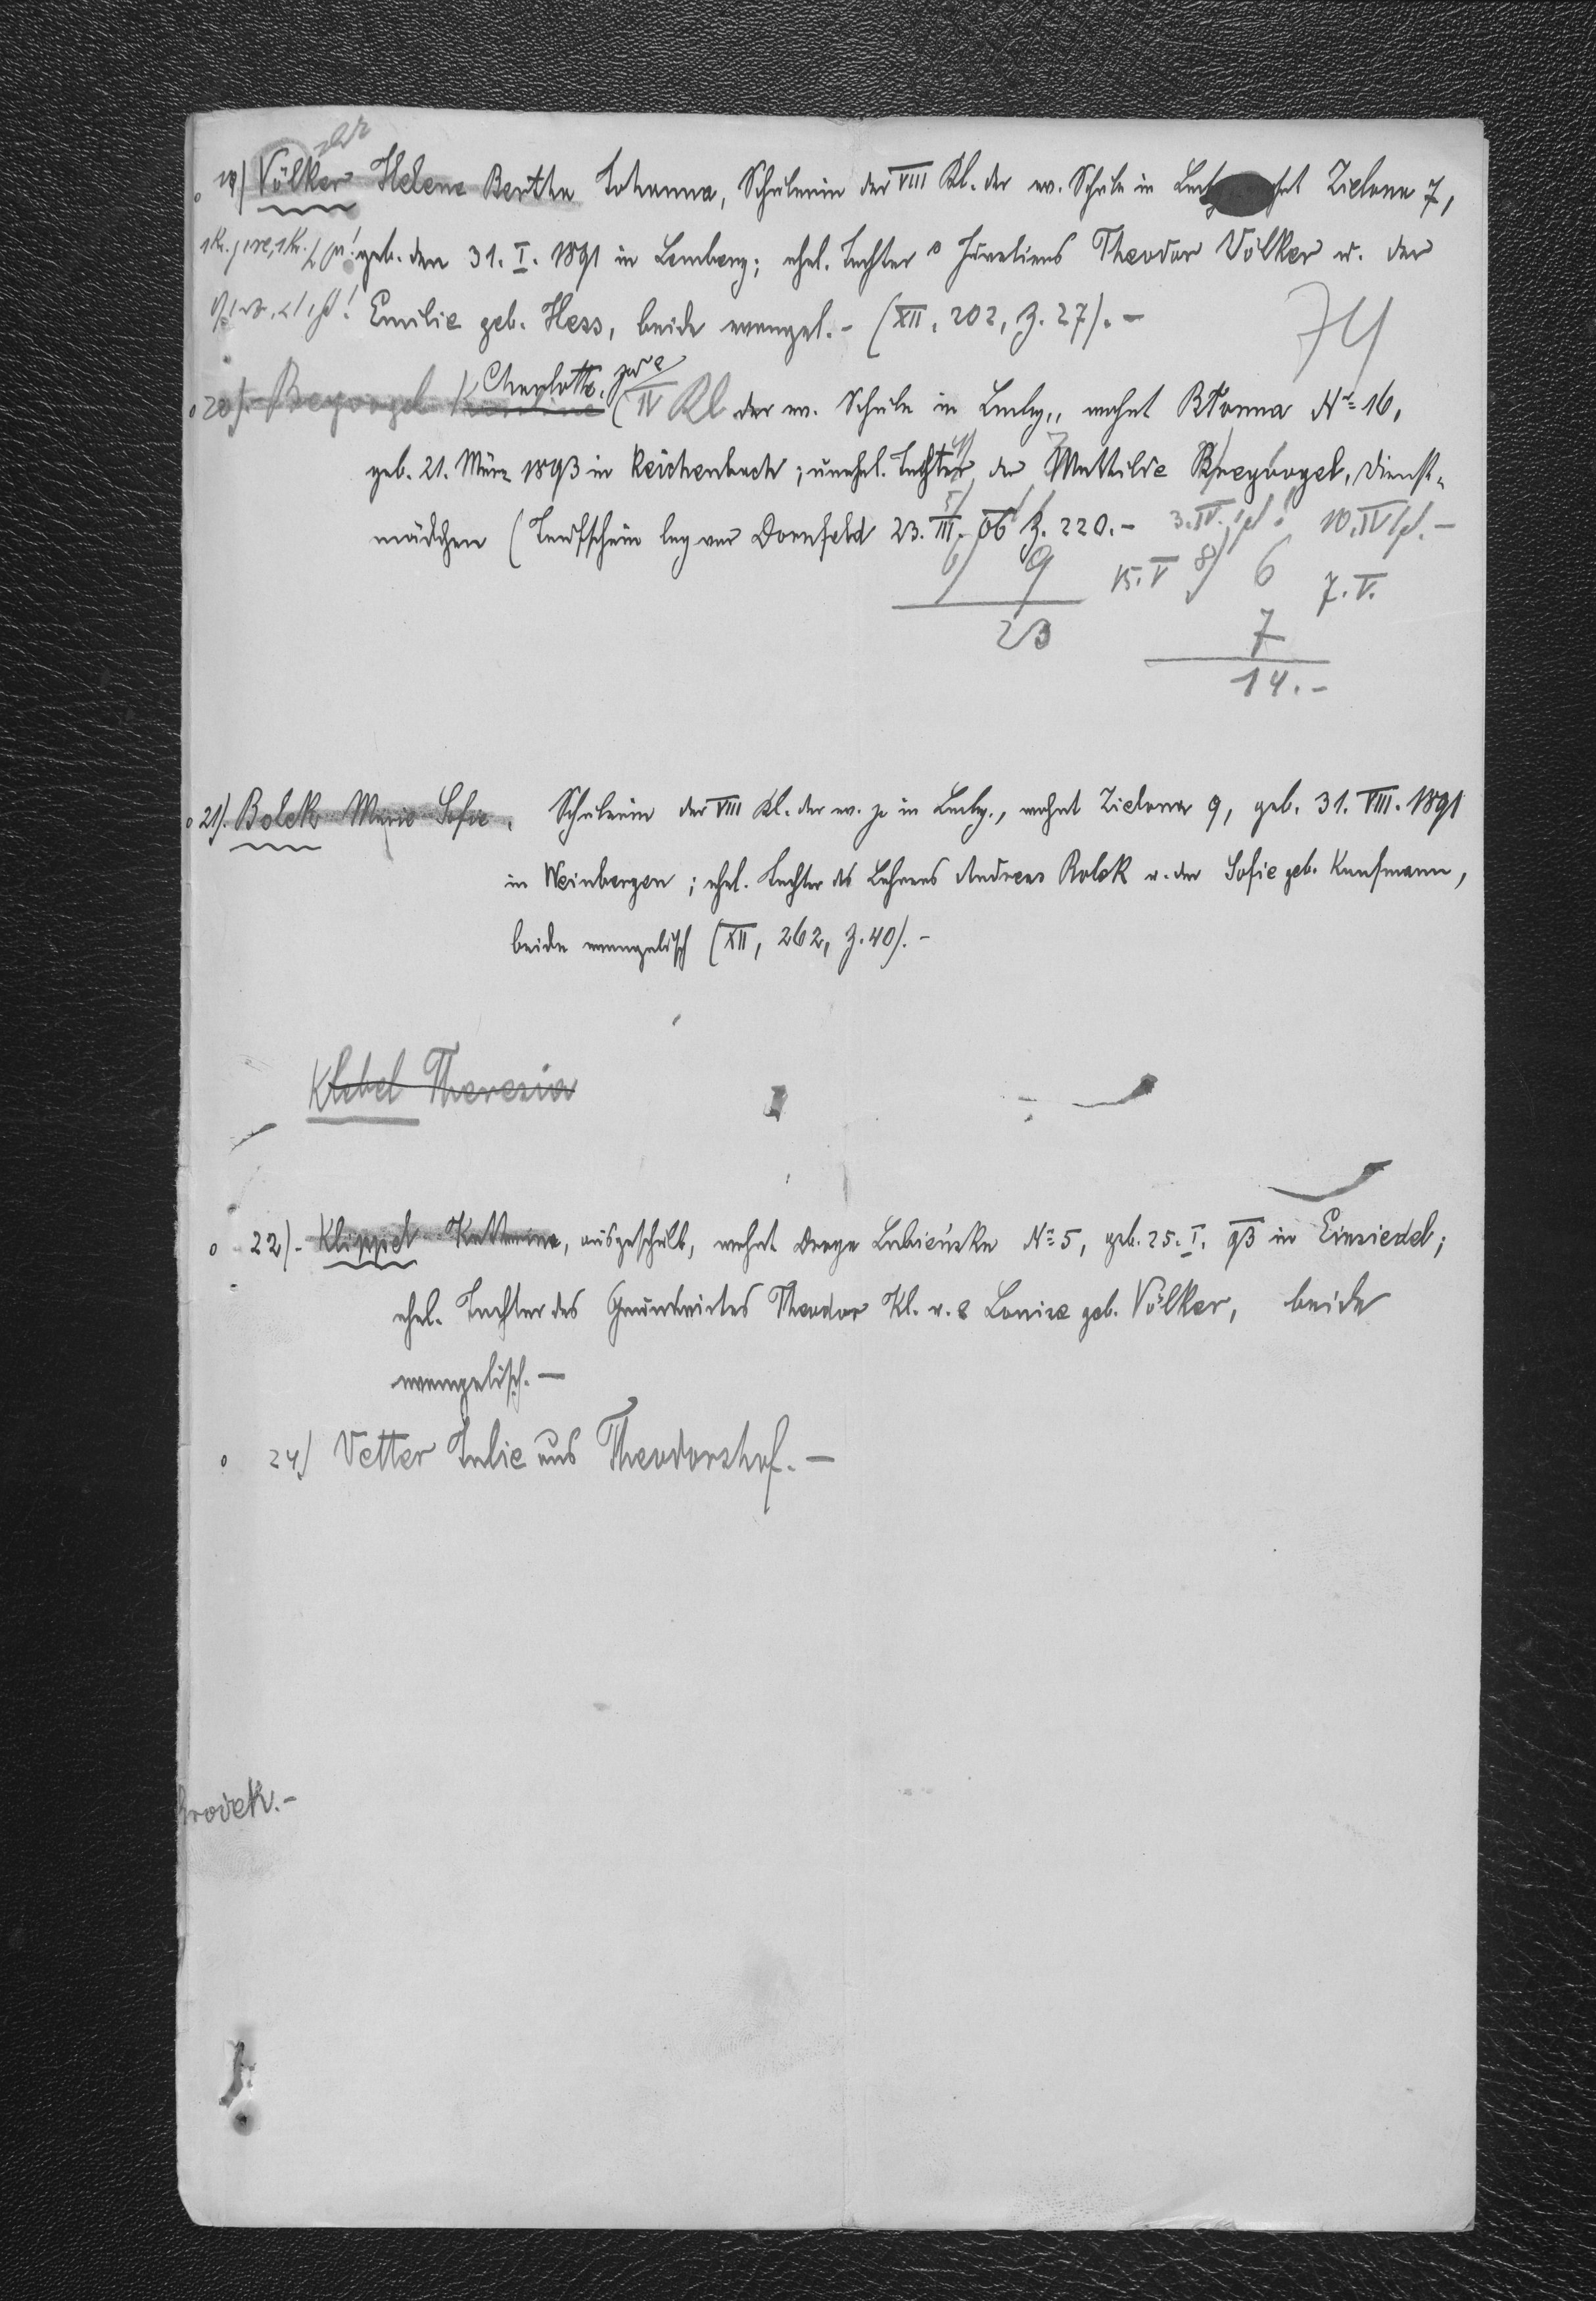 19) Völker Helene Bertha Johanna, Schülerin der VIII Kl. der ev. Schule in Lembg. wohnt Zielona 7,
geb. den 31. I. 1891 in Lemberg; ehel. Tochter d Juweliers Theodor Völker u. der
Emilie geb. Hess, beide evangel. - (XII, 202, Z. 27). -
74
Charlotte
20). Breyvogel (IV Kl der ev. Schule in Lembg., wohnt Błonna No 16,
geb. 21. März 1893 in Reichenbach; unehel. Tochter der Mathilde Breyvogel, Dienst-
mädchen (Taufschein lag vor Dornfeld 23. III. 06 Z. 220. - 3. IV. 10. IV
6) 9 15. V 8) 6 7. V.
23 7
14. -
21). Bolek Marie Sofie. Schülerin der VIII Kl. der ev. in Lembg., wohnt Zielona 9, geb. 31. VIII. 1891
in Weinbergen; ehel. Tochter des Lehrers Andreas Bolek u. der Sofie geb. Kaufmann,
beide evangelisch (XII, 262, Z. 40). -
Klebel Theresia
22). - Klippel Katharine, ausgeschult, wohnt Droga Lubieńska No 5, geb. 25. I. 93 in Einsiedel;
ehel. Tochter des Grundwirtes Theodor Kl. u. d Louise geb. Völker, beide
evangelisch. -
24) Vetter Julie aus Theodorshof. -